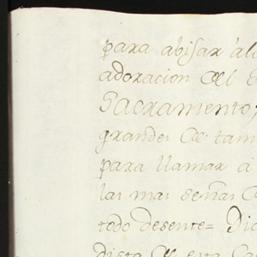 para abisar à l
adoracion del
Sacramento,
grande: de tam
para llamar à
las mas señas
todo desente= Dic
dista de esta Ca